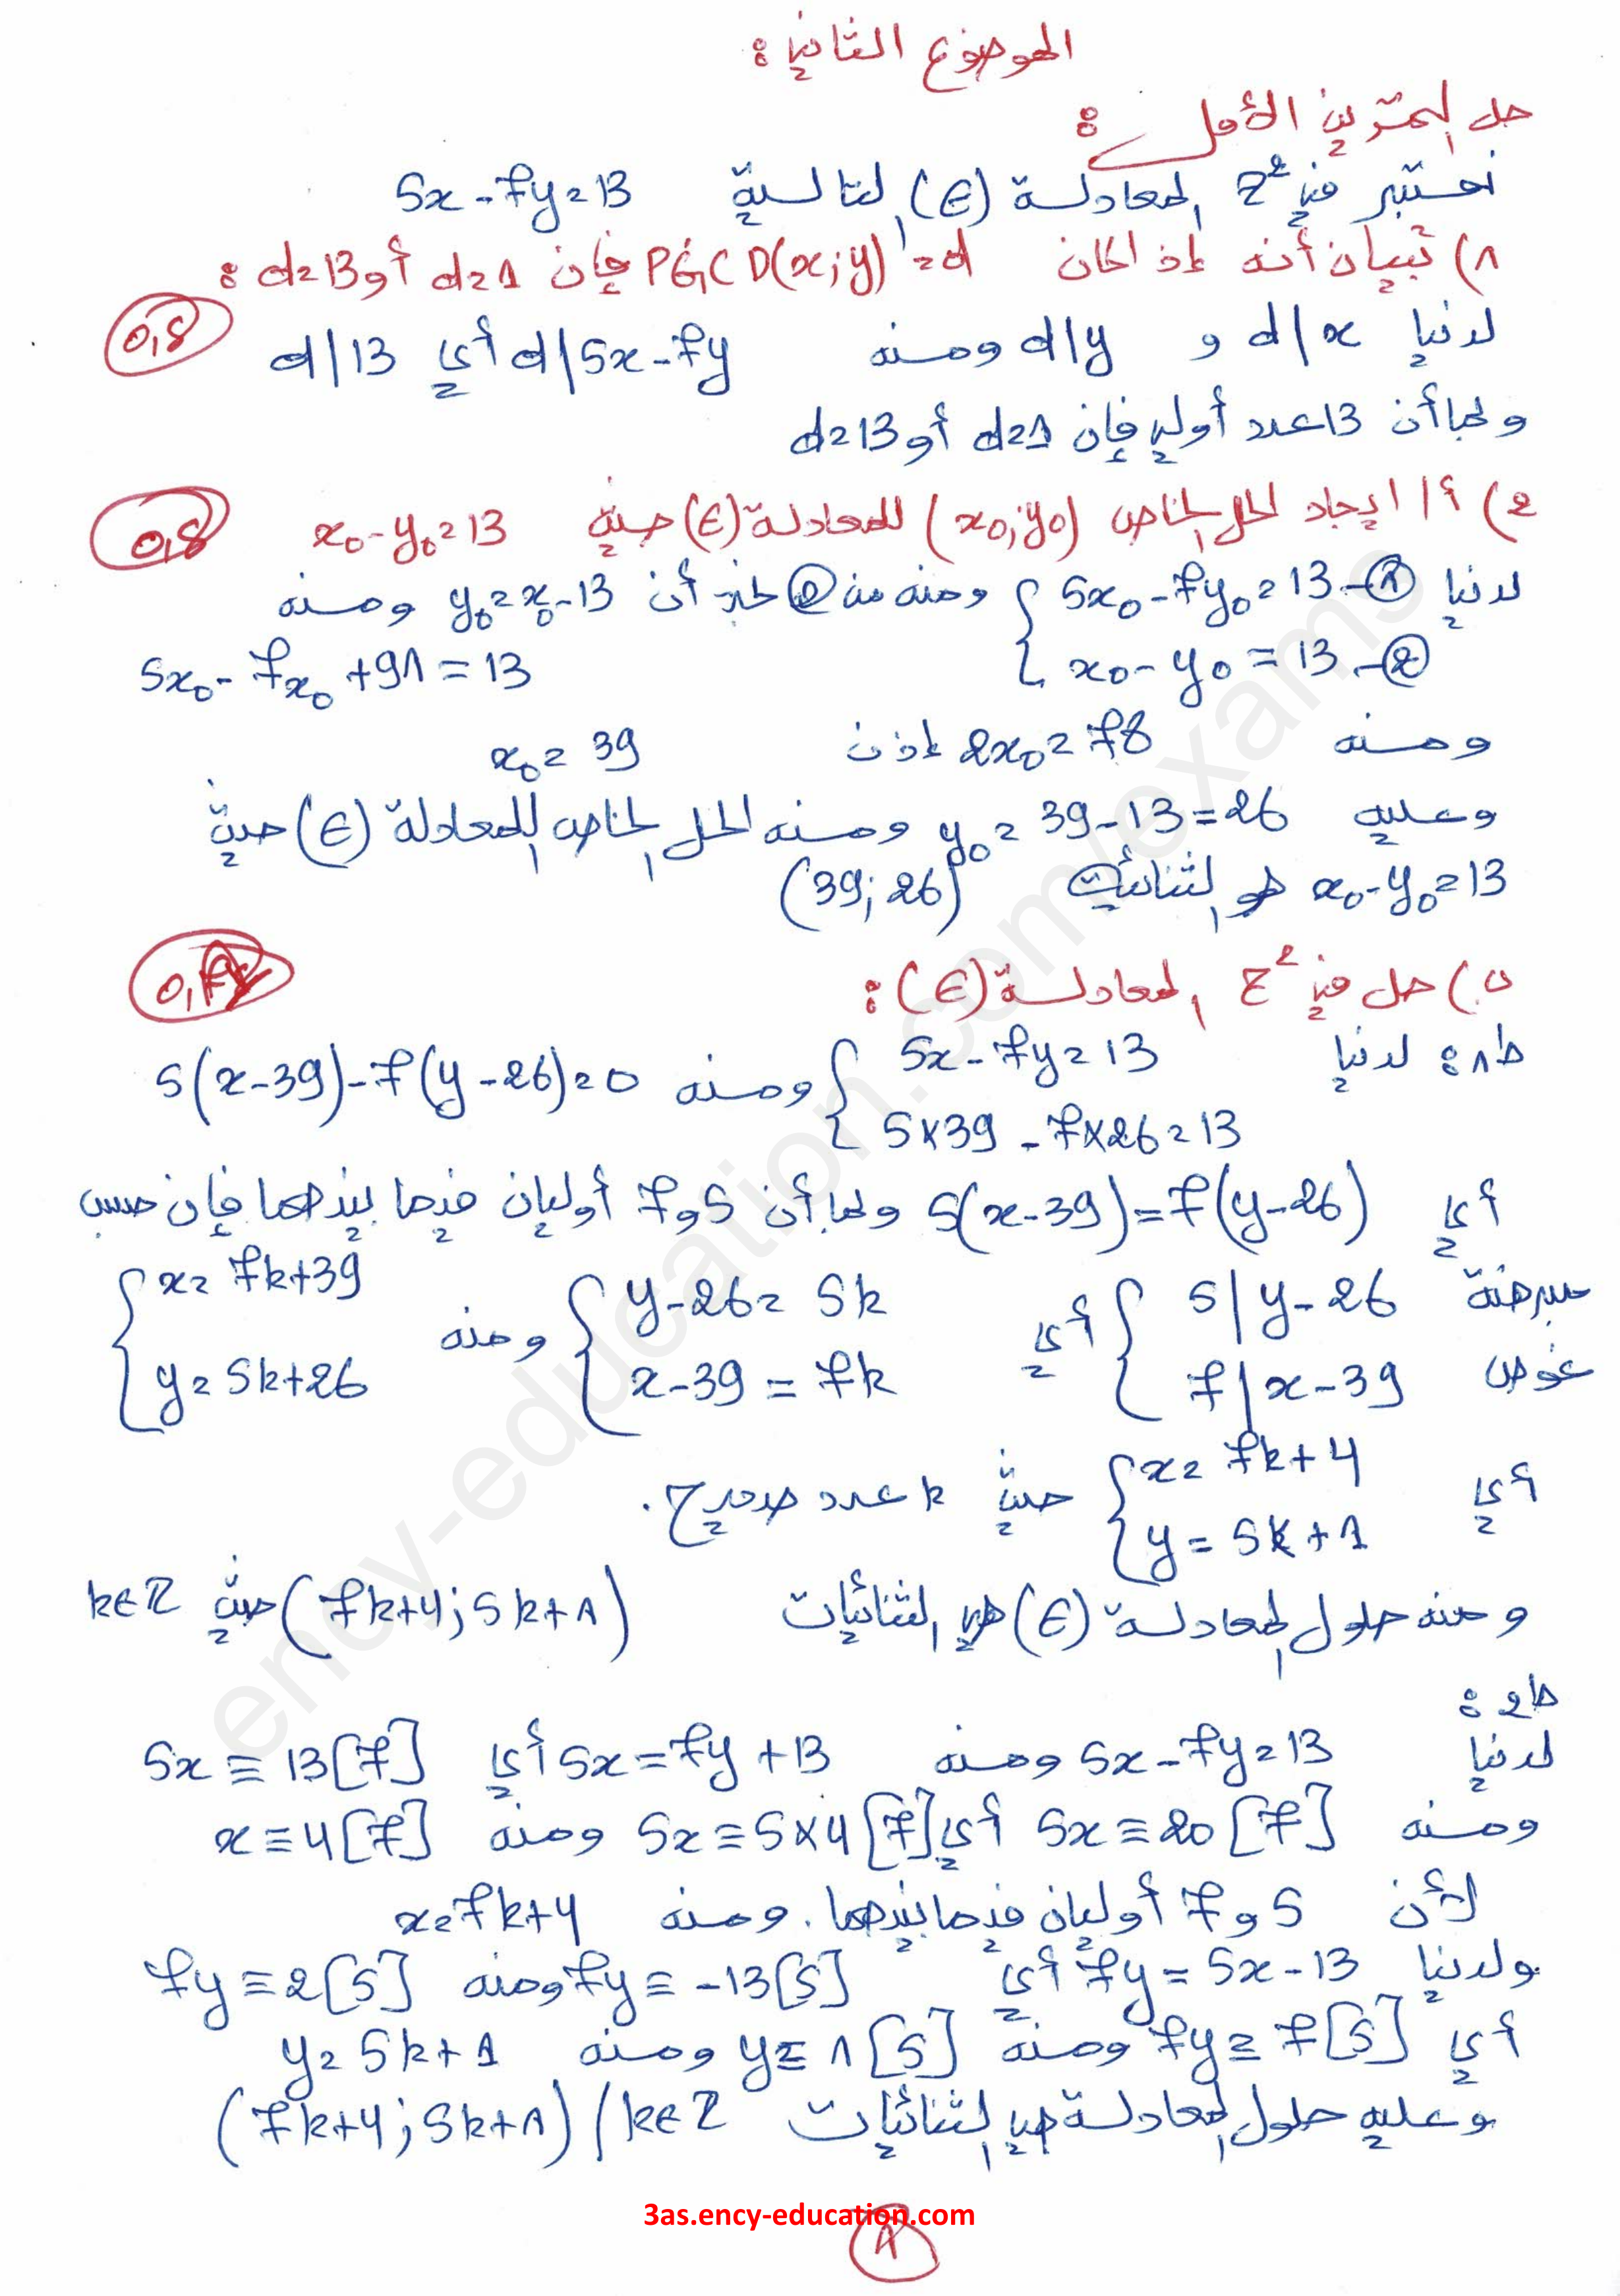 الموضوع الثاني :
حل التمرين الأول :
نعتبر في Z² المعادلة (E) التالية 5x - 7y = 13
1) تبيان أنه إذا كان PGCD(x;y) = d فإن d=1 أو d=13 :
0,5
لدينا d/x و d/y ومنه d/5x-7y أي d/13
وبما أن 13 عدد أولي فإن d=1 أو d=13
2) أ/ ايجاد الحل الخاص (x0;y0) للمعادلة (E) حيث x0-y0=13
0,5
لدينا { 5x0-7y0=13 -① ومنه من ② نجد أن y0=x0-13 ومنه
x0-y0=13 -② 5x0-7x0+91=13
ومنه 2x0=78 إذن x0=39
وعليه y0=39-13=26 ومنه الحل الخاص للمعادلة (E) حيث
x0-y0=13 هو الثنائية (39;26)
ب) حل في Z² المعادلة (E) :
ط1: لدينا { 5x-7y=13 ومنه 5(x-39)-7(y-26)=0
5×39-7×26=13
أي 5(x-39)=7(y-26) وبما أن 5 و7 أوليان فيما بينهما فإن حسب
مبرهنة { 5/y-26 أي { y-26=5k ومنه { x=7k+39
غوص 7/x-39 x-39=7k y=5k+26
أي { x=7k+4 حيث k عدد صحيح.
y=5k+1
ومنه حلول المعادلة (E) هي الثنائيات (7k+4;5k+1) حيث k∈Z
ط2:
لدينا 5x-7y=13 ومنه 5x=7y+13 أي 5x≡13[7]
ومنه 5x≡20[7] أي 5x≡5×4[7] ومنه x≡4[7]
لأن 5 و7 أوليان فيما بينهما. ومنه x=7k+4
ولدينا 7y=5x-13 أي 7y≡-13[5] ومنه 7y≡2[5]
أي 7y≡7[5] ومنه y≡1[5] ومنه y=5k+1
وعليه حلول المعادلة هي الثنائيات (7k+4;5k+1)/k∈Z
3as.ency-education.com
1
ency-education.com/exams